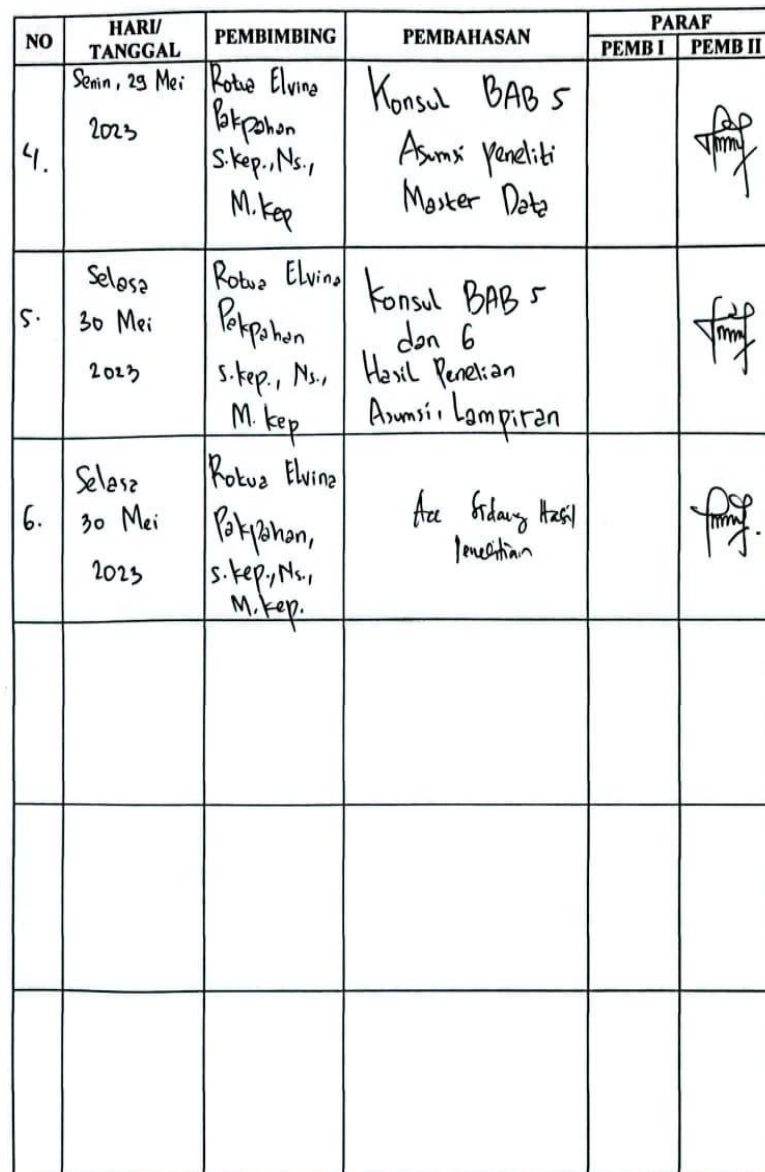 NO HARI/ TANGGAL PEMBIMBING PEMBAHASAN PARAF
PEMB I PEMB II
4.
Senin, 29 Mei
2023
Rotua Elvina
Pakpahan
S.kep., Ns.,
M.kep
Konsul BAB 5
Asumsi peneliti
Master Data
5.
Selasa
30 Mei
2023
Rotua Elvina
Pakpahan
S.kep., Ns.,
M.kep
Konsul BAB 5
dan 6
Hasil Penelian
Asumsi, Lampiran
6.
Selasa
30 Mei
2023
Rotua Elvina
Pakpahan,
S.kep., Ns.,
M.kep.
Acc Sidang Hasil
Penelitian